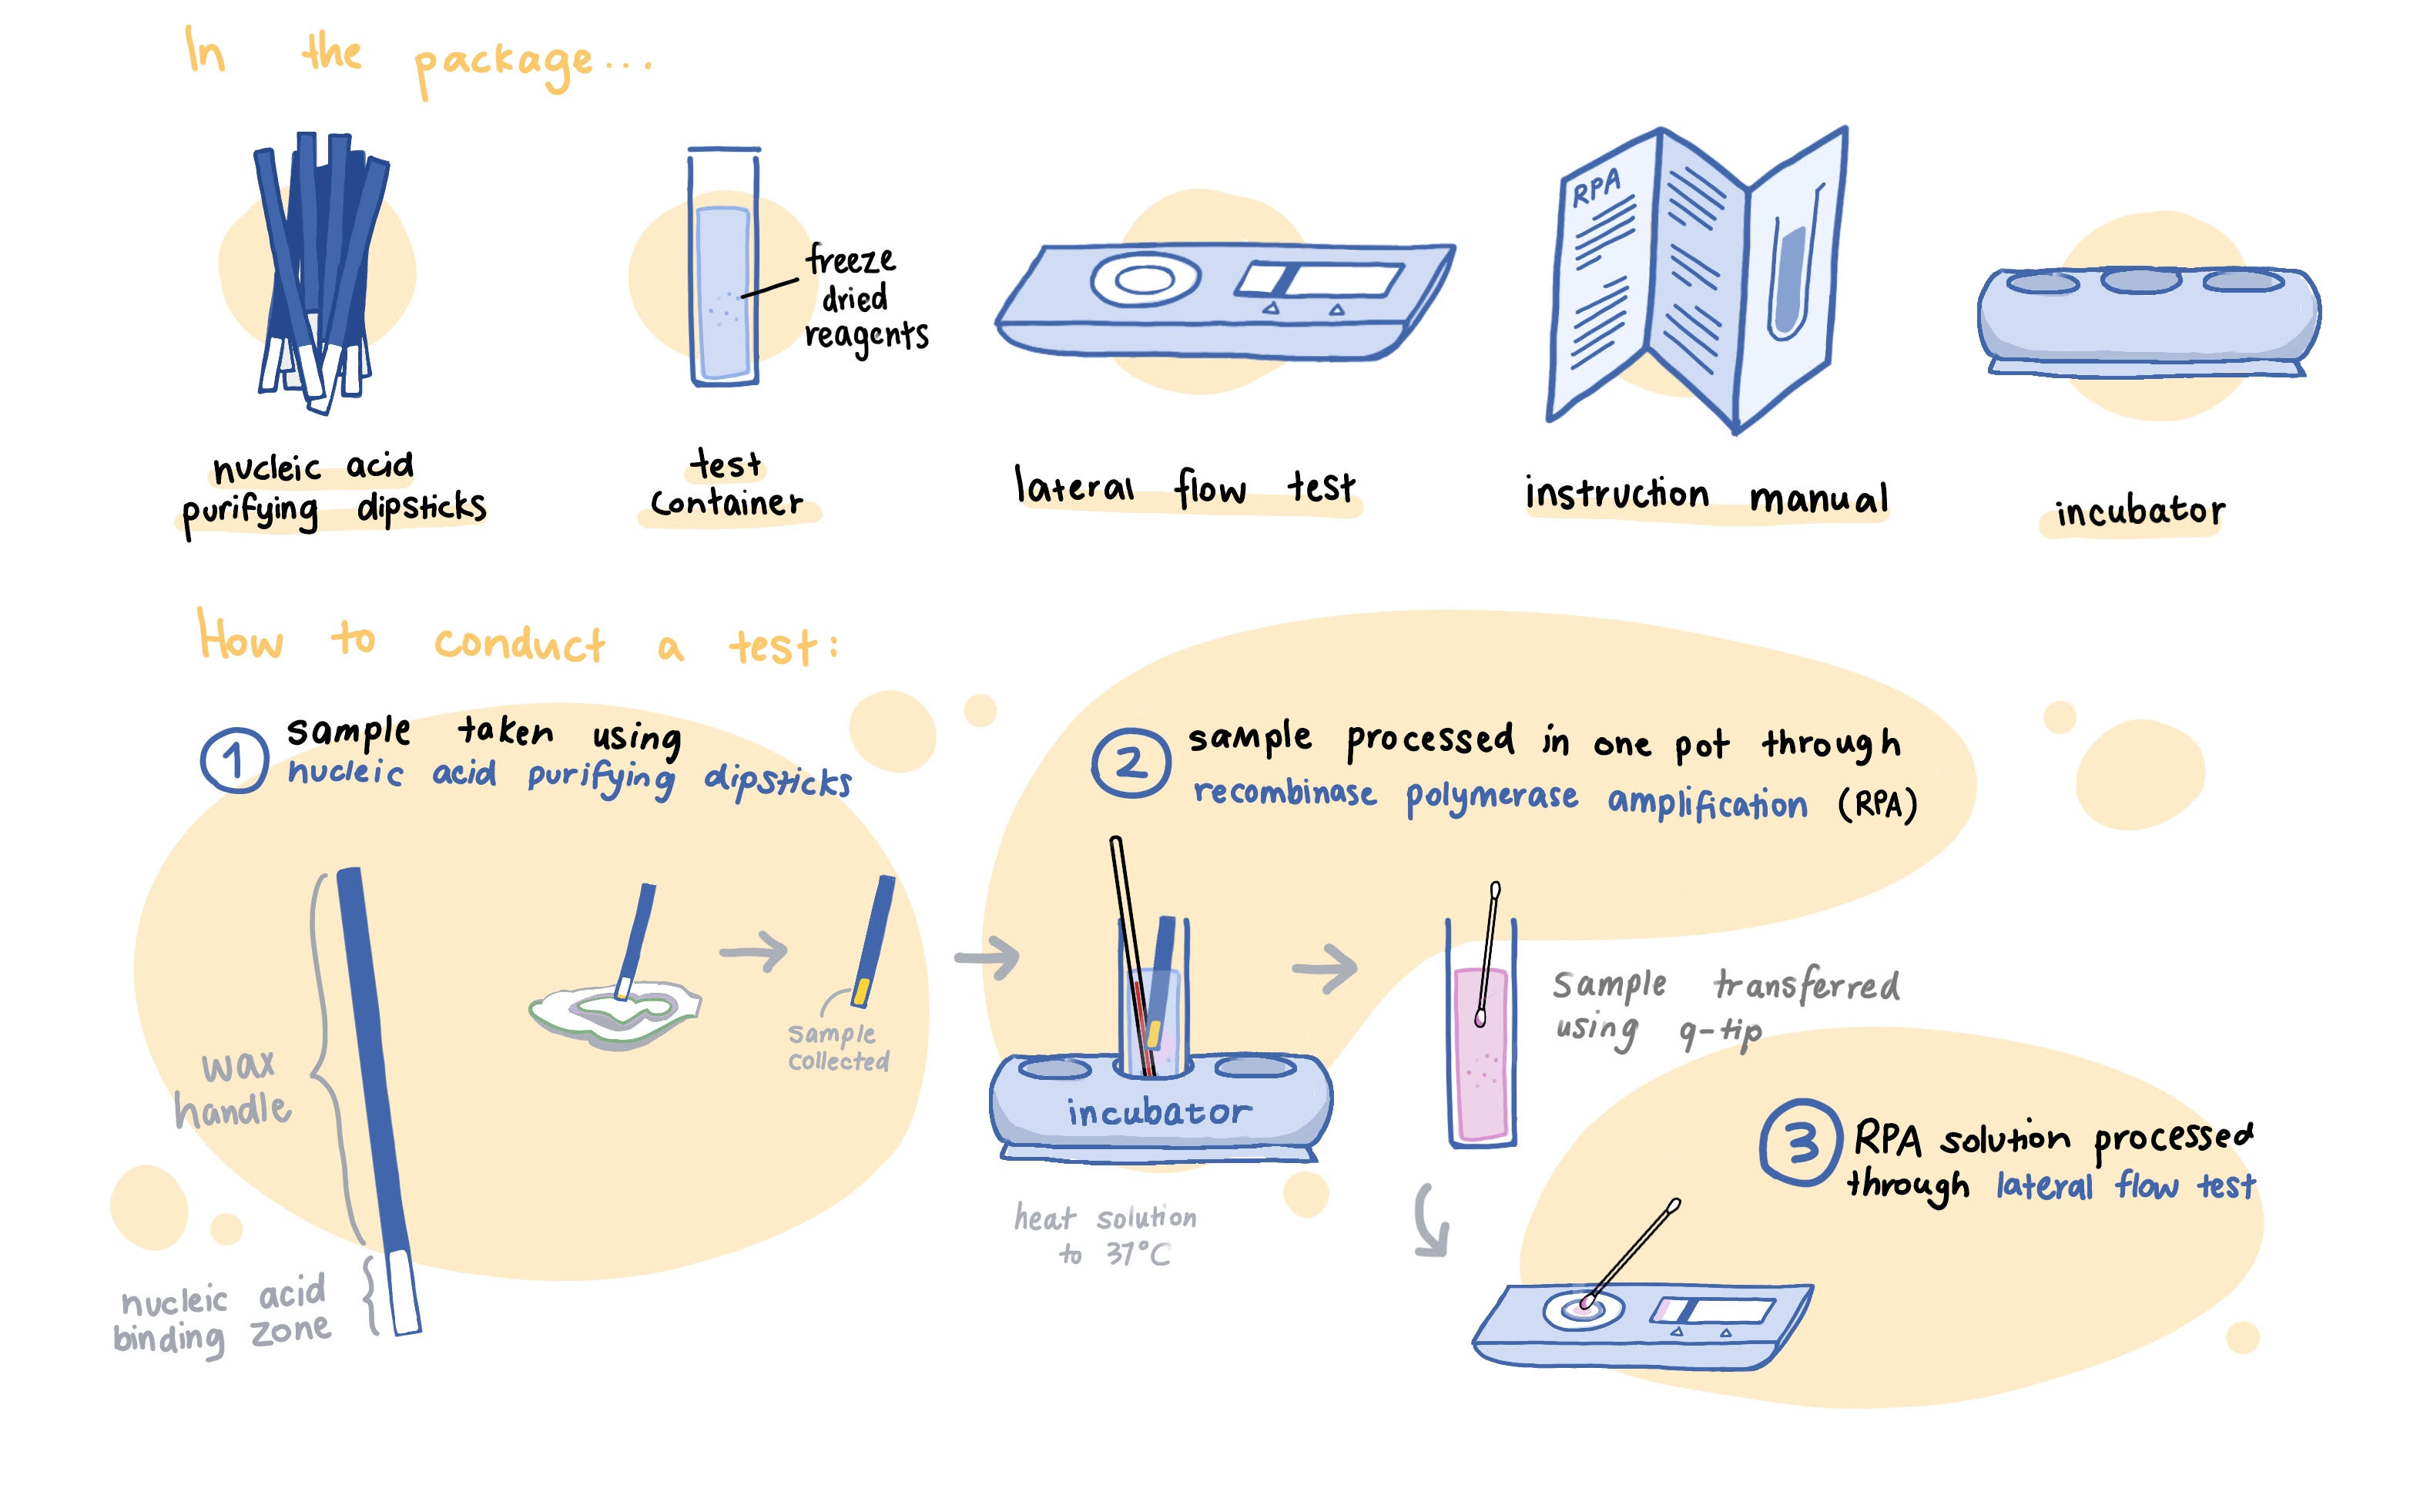 In the package...
freeze
dried
reagents
RPA
nucleic acid
purifying dipsticks
test
container
lateral flow test
instruction manual
incubator
How to conduct a test:
1 sample taken using
nucleic acid purifying dipsticks
wax
handle
nucleic acid
binding zone
sample
collected
2 sample processed in one pot through
recombinase polymerase amplification (RPA)
incubator
heat solution
to 37°C
sample transferred
using q-tip
3 RPA solution processed
through lateral flow test